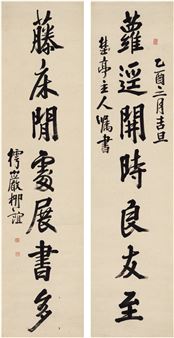 乙酉三月吉旦
蘿逕開時良友至
亭主人囑書
藤床閒處展書多
巖柳誼